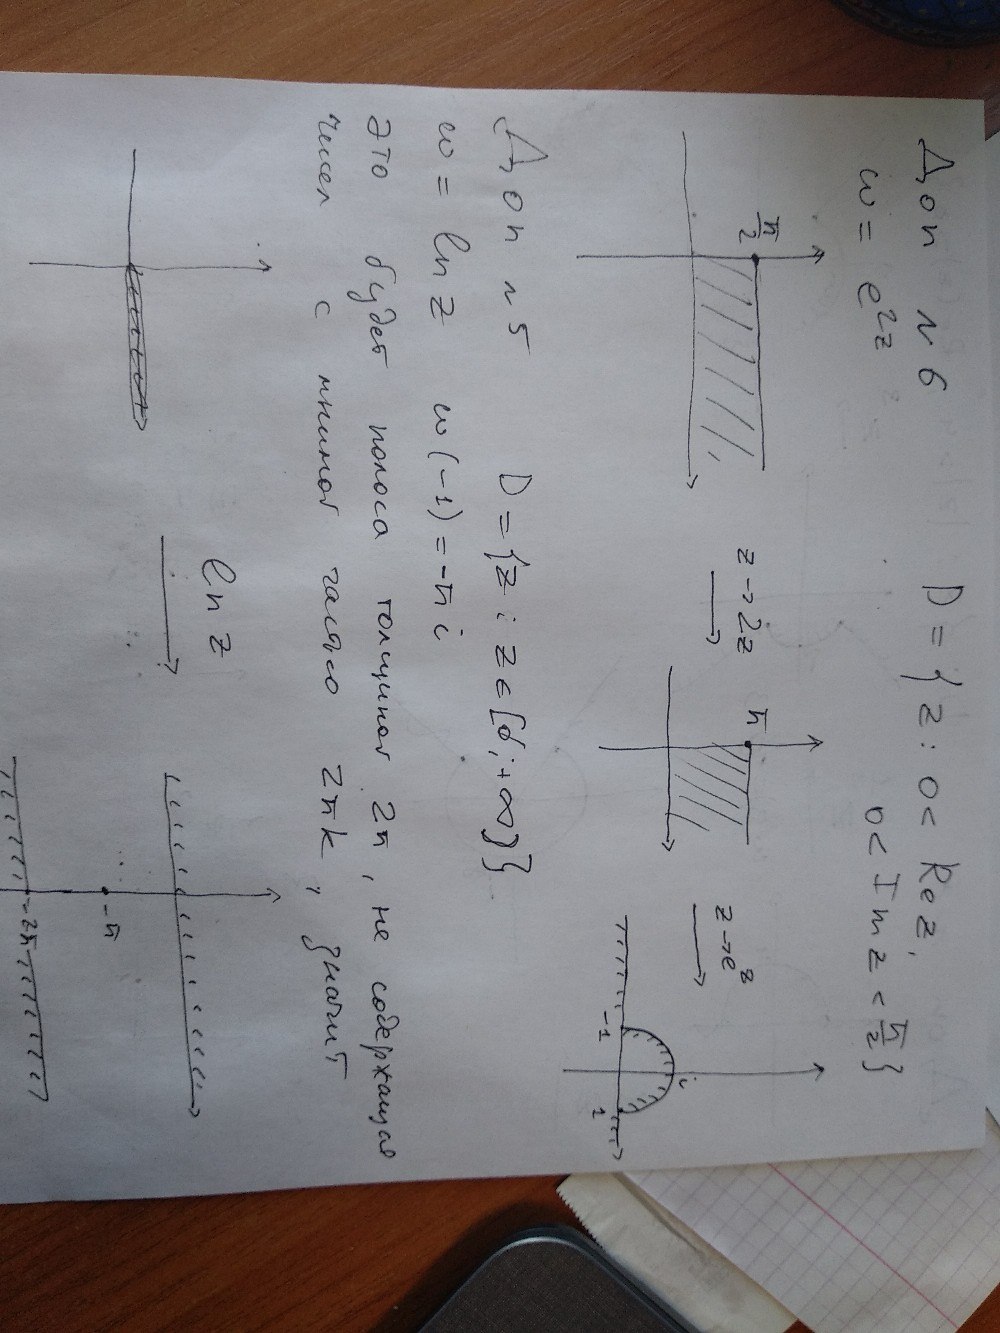 Доп №6 D = { z : 0 < Re z,
w = e^{2z} 0 < Im z < π/2 }
π/2 z→2z π z→e^z i
-1 1
Доп №5 D = { z : z ∈ [0; +∞) }
w = ln z w(-1) = -πi
это будет полоса толщиной 2π, не содержащая
чисел с мнимой частью 2πk, значит
ln z
-π
-2π